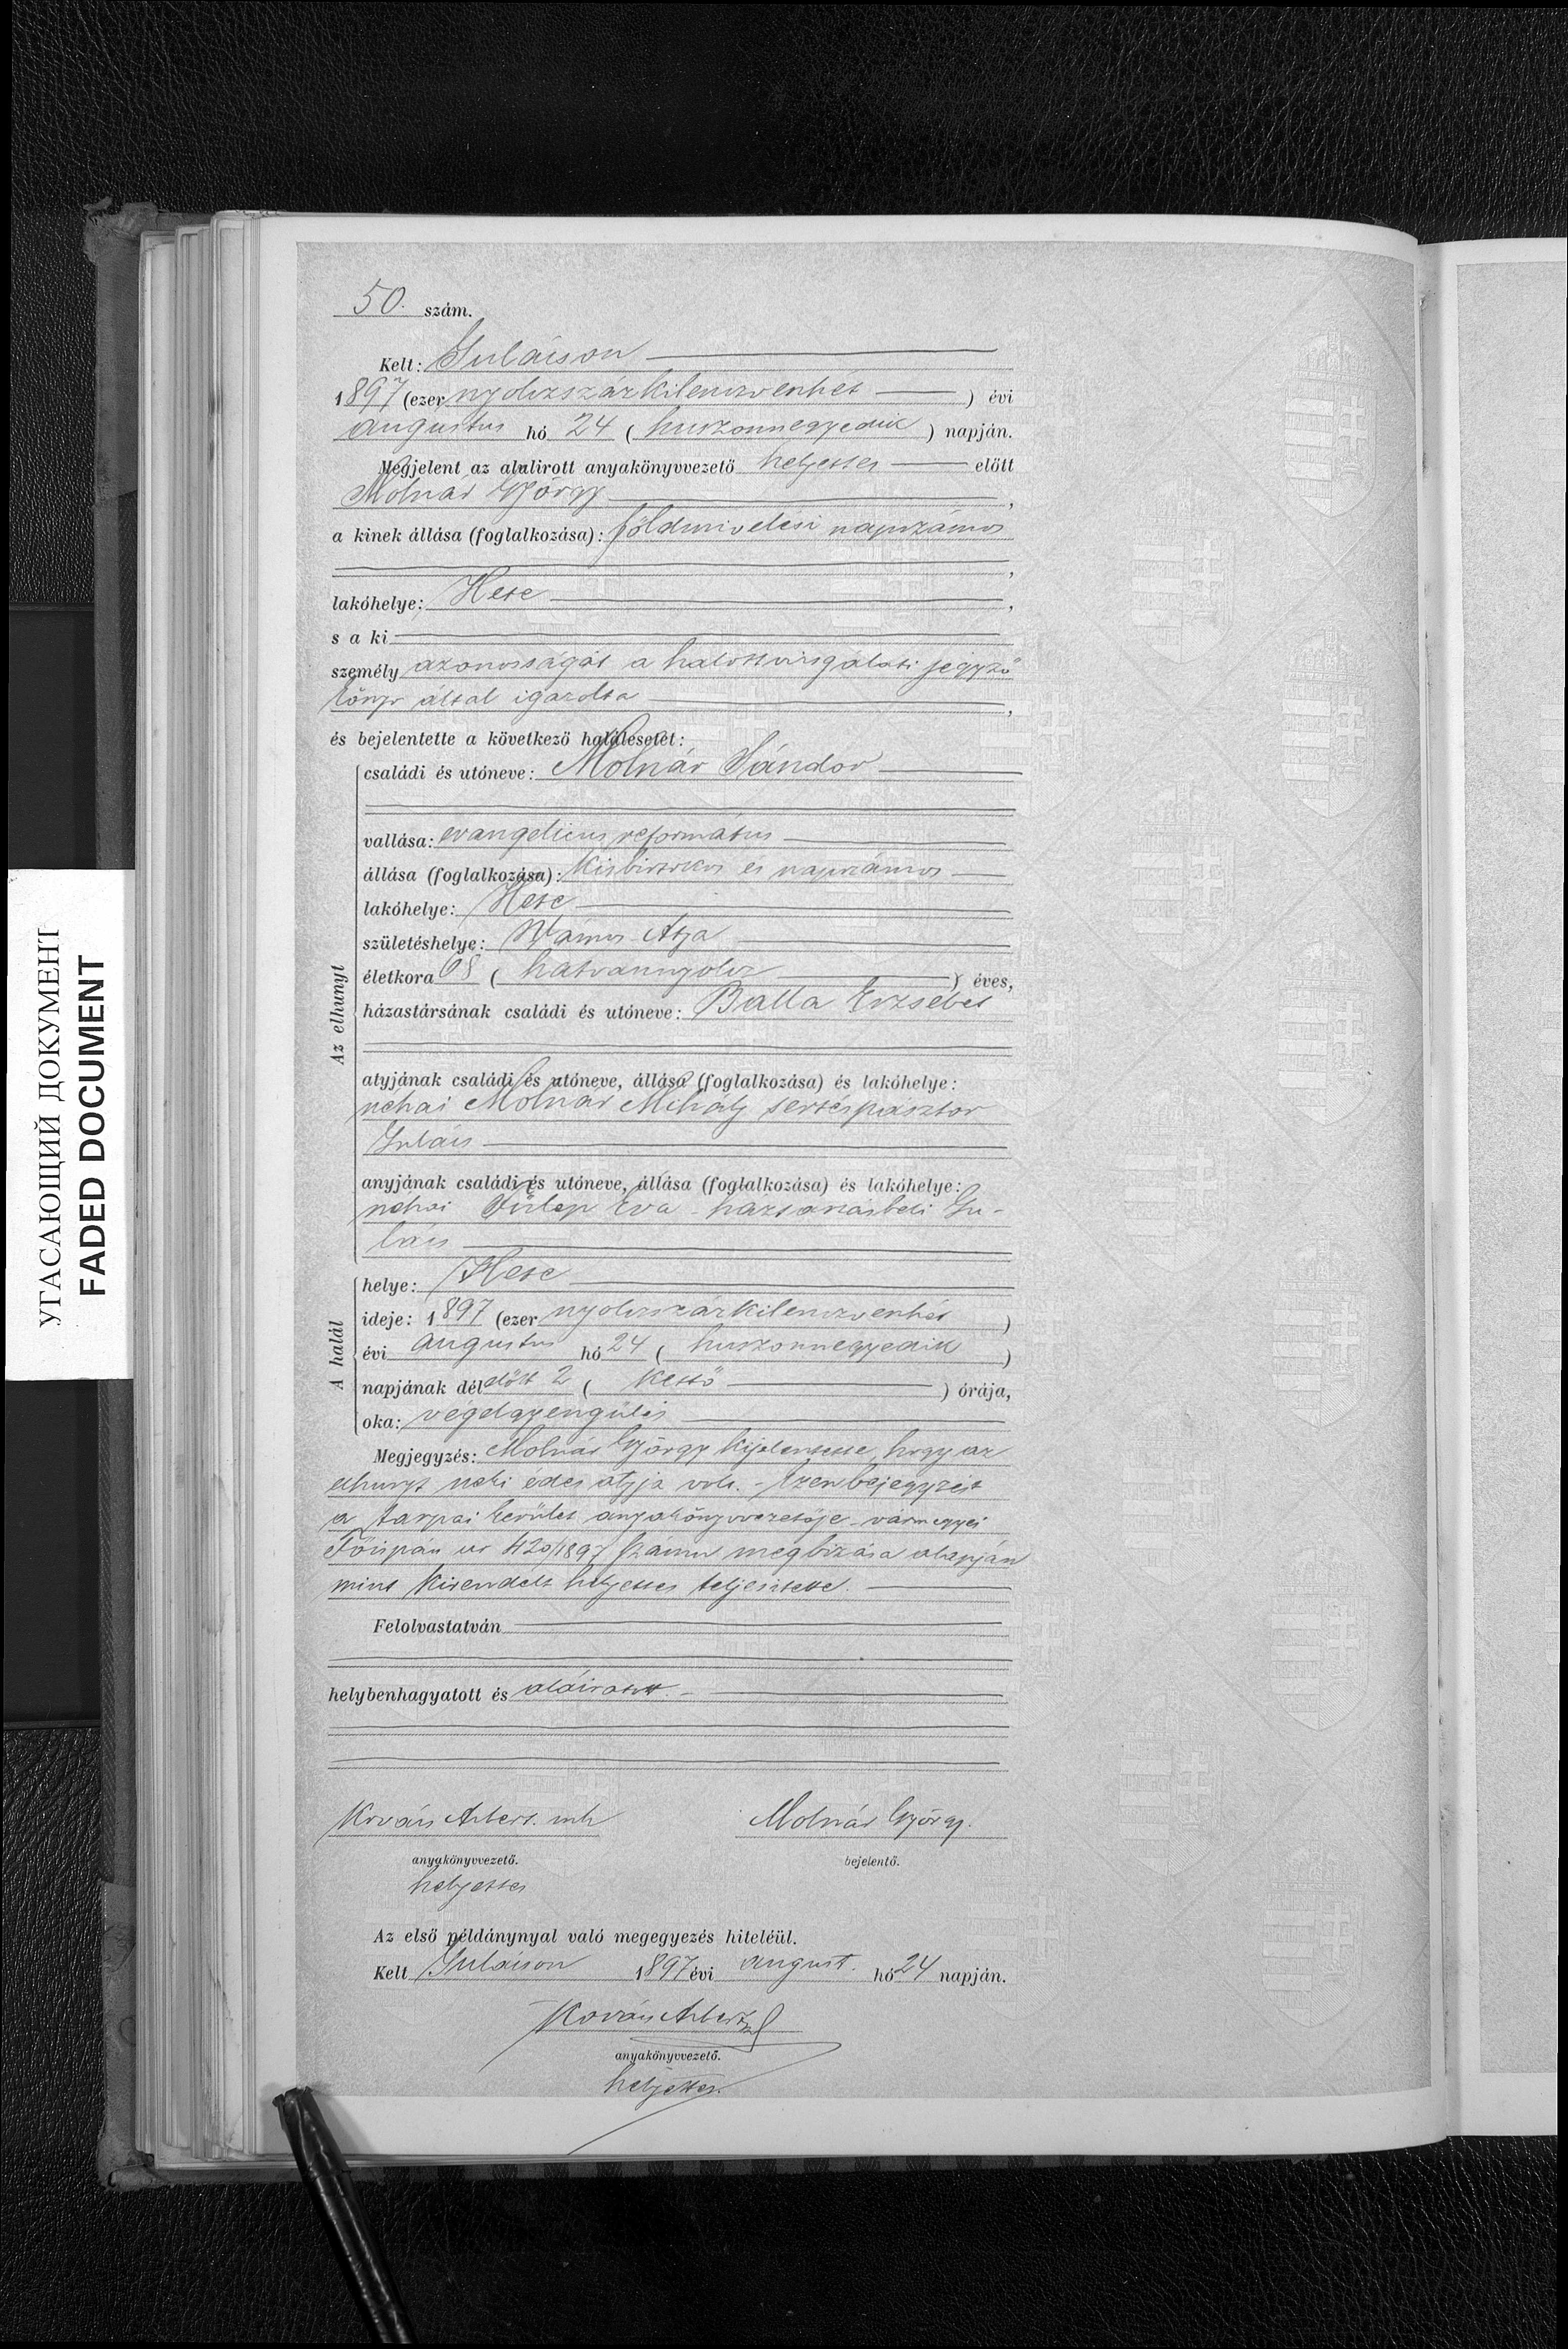 50. szám.
Kelt: Guláison
1897 (ezer nyolczszázkilenczvenhét) évi
augustus hó 24 (huszonnegyedik) napján.
Megjelent az alulirott anyakönyvvezető helyettes előtt
Molnár György,
a kinek állása (foglalkozása): földmivelési napszámos
,
lakóhelye: Hete,
s a ki
személy azonosságát a halottvizsgálati jegyző
könyv által igazolta,
és bejelentette a következő halálesetet:
Az elhunyt
családi és utóneve: Molnár Sándor
vallása: evangelicus református
állása (foglalkozása): kisbirtokos és napszámos
lakóhelye: Hete
születéshelye: Vámos-Atya
életkora 68 (hatvannyolcz) éves,
házastársának családi és utóneve: Balla Erzsébet
atyjának családi és utóneve, állása (foglalkozása) és lakóhelye:
néhai Molnár Mihály sertéspásztor
Guláis
anyjának családi és utóneve, állása (foglalkozása) és lakóhelye:
néhai Fülep Éva háztartásbeli Gu-
láis
A halál
helye: Hete
ideje: 1897 (ezer nyolczszázkilenczvenhét)
évi augustus hó 24 (huszonnegyedik)
napjának délelőtt 2 (kettő) órája,
oka: végelgyengülés
Megjegyzés: Molnár György kijelentette, hogy az
elhunyt neki édes atyja volt. - Ezen bejegyzést
a tarpai kerület anyakönyvvezetője vármegyei
Főispán ur 420/1897 számu megbizása alapján
mint kirendelt helyettes teljesitette.
Felolvastatván
helybenhagyatott és aláiratott. -
Albert
Molnár György.
anyakönyvvezető.
bejelentő.
helyettes
Az első példánynyal való megegyezés hiteléül.
Kelt Guláison 1897 évi august. hó 24 napján.
Albert
anyakönyvvezető.
helyettes.
УГАСАЮЩИЙ ДОКУМЕНТ
FADED DOCUMENT